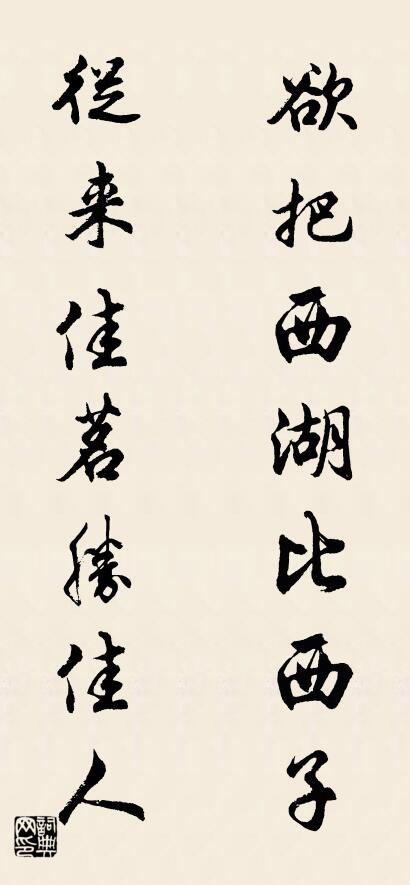 欲把西湖比西子
從来佳茗勝佳人
詞典网印